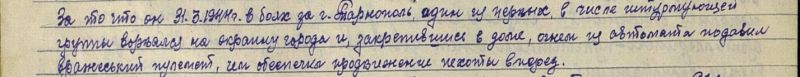 За то что он 31.3.1944г. в боях за г. Тарнополь, один из первых, в числе штурмующей
группы ворвался на окраину города и, закрепившись в доме, огнем из автомата подавил
вражеский пулемет, чем обеспечил продвижение пехоты вперед.